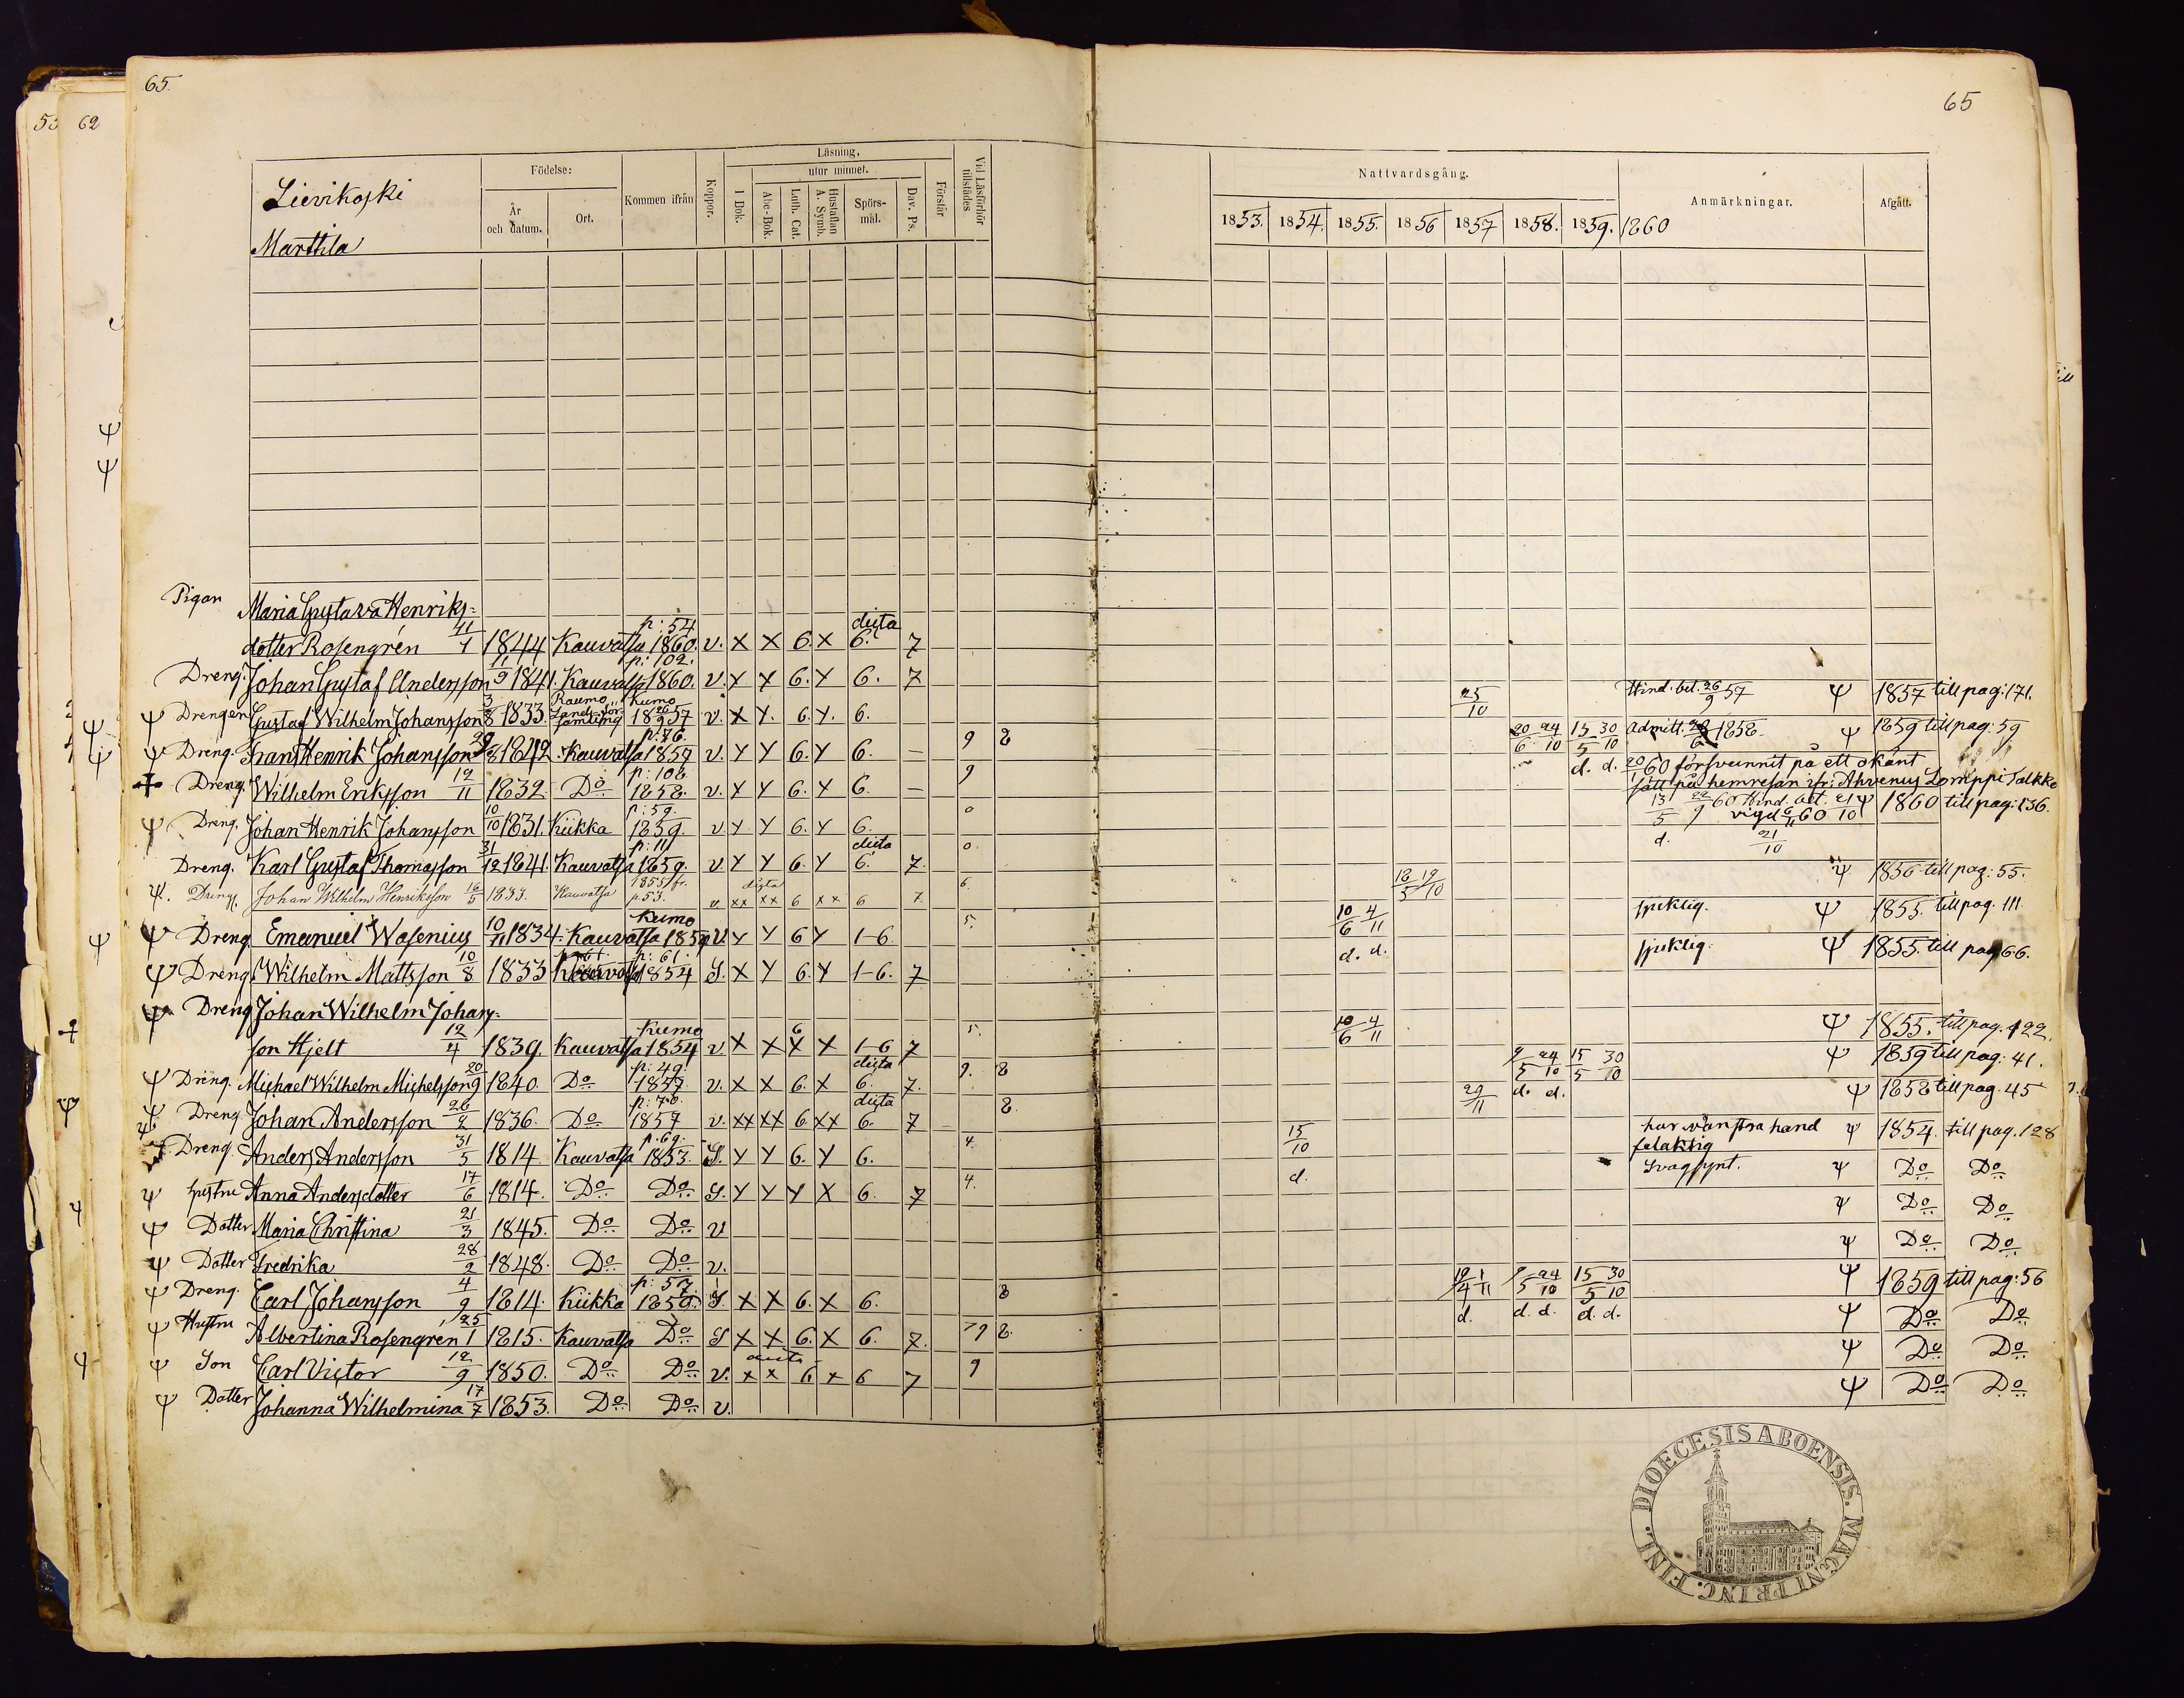 65.
65
53 62
Lievikoski
Marttila
Födelse:
År och datum.
Ort.
Kommen ifrån
Koppor.
Läsning,
utur minnet.
I Bok.
Abc-Bok.
Luth. Cat.
Hustaflan A. Symb.
Spörs-mål.
Dav. Ps.
Förstår
Vid Läsförhör tillstädes
Nattvardsgång.
1853. 1854. 1855. 1856 1857 1858. 1859. 1860
Anmärkningar.
Afgått.
Pigan Maria Gustava Henriks=
dotter Rosengrén 11/1 1844 Kauvatsa p: 54 1860. v. x x 6. x dicta 6. 7
Dreng. Johan Gustaf Andersson 11/9 1841. Kauvatsa p: 102. 1860. v. x x 6. x 6. 7
Ψ Drengen Gustaf Wilhelm Johansson 3/8 1833. Raumo Lands för samling Kumo 18 26/9 57 v. x x. 6. x. 6. 25/10 Hind. bet. 26/9 57 Ψ 1857 till pag: 171.
Ψ Dreng. Frans Henrik Johansson 1842. Kauvatsa p: 76. 1859 v. x x 6. x 6. – 9 8 20/6 24/10 15/5 30/10 Admitt. 1858. Ψ 1859 till pag: 59
Dreng. Wilhelm Eriksson 12/11 1832 Do p: 108. 1858. v. x x 6. x 6. – 9 d. d. 20/1 60 försvunnit på ett okänt
sätt på hemresan ifr: Ahvenus Lomppi Talkko
Ψ Dreng. Johan Henrik Johansson 10/10 1831. Kiikka p: 59. 1859. v. x x 6. x 6. 0 13/5 22/9 60 Hind. bet. 21/10 Ψ 1860 till pag: 136.
vigd 6/11 60
Dreng. Karl Gustaf Thomasson 31/12 1841. Kauvatsa p: 11 1859. v. x x 6. x dicta 6. 7. 0. d. 21/10
Ψ. Dreng. Johan Wilhelm Henriksson 16/5 1833. Kauvatsa 1855 fr. p 53. v xx xx 6 xx 6 7 6. 18/5 19/10 Ψ 1856 till pag: 55.
Ψ Dreng Emanuel Wasenius 10/11 1834. Kauvatsa Kumo 1852 v. x x 6 x 1-6. 5. 10/6 4/11 sjuklig. Ψ 1855. till pag. 111.
Ψ Dreng. Wilhelm Mattsson 10/8 1833 Kauvatsa p: 61. 1854 S. x x 6. x 1-6. 7 d. d. sjuklig. Ψ 1855. till pag 66.
Ψ Dreng Johan Wilhelm Johans=
son Hjelt 12/4 1839. Kauvatsa Kumo 1854 v. x x 6 x x 1-6 7 5. 10/6 4/11 Ψ 1855. till pag. 122.
Ψ Dräng. Michael Wilhelm Michelsson 20/9 1840. Do p: 49. 1857. v. x x 6. x dicta 6. 7. 9. 8 9/5 24/10 15/5 30/10 Ψ 1859 till pag: 41.
Ψ Dreng Johan Andersson 26/2 1836. Do p: 70. 1857 v. xx xx 6. xx dicta 6. 7 8. 29/11 d. d. Ψ 1858 till pag. 45
Dreng. Anders Andersson 31/5 1814. Kauvatsa p. 69. 1853. S. x x 6. x 6. 4. 15/10 har vänstra hand
felaktig Ψ 1854. till pag. 128
Ψ hustru Anna Andersdotter 17/6 1814. Do Do S. x x x x 6. 7 4. d. Svagsynt. Ψ Do Do
Ψ Dotter Maria Christina 21/3 1845. Do Do v Ψ Do Do
Ψ Dotter Fredrika 28/2 1848. Do Do v. Ψ Do Do
Ψ Dreng. Carl Johansson 4/9 1814. Kiikka p: 57 1859. S. x x 6. x 6. 8 19/4 1/11 9/5 24/10 15/5 30/10 Ψ 1859 till pag: 56
Ψ Hustru Albertina Rosengren 25/1 1815. Kauvatsa Do S x x 6. x 6. 7. 9 8. d. d. d. d. d. Ψ Do Do
Ψ Son Carl Victor 12/9 1850. Do Do v. x x 6 x 6 7 9 Ψ Do Do
Ψ Dotter Johanna Wilhelmina 17/7 1853. Do Do v. Ψ Do Do
DIOECESIS ABOENSIS. MAGNI PRINC. FINL.